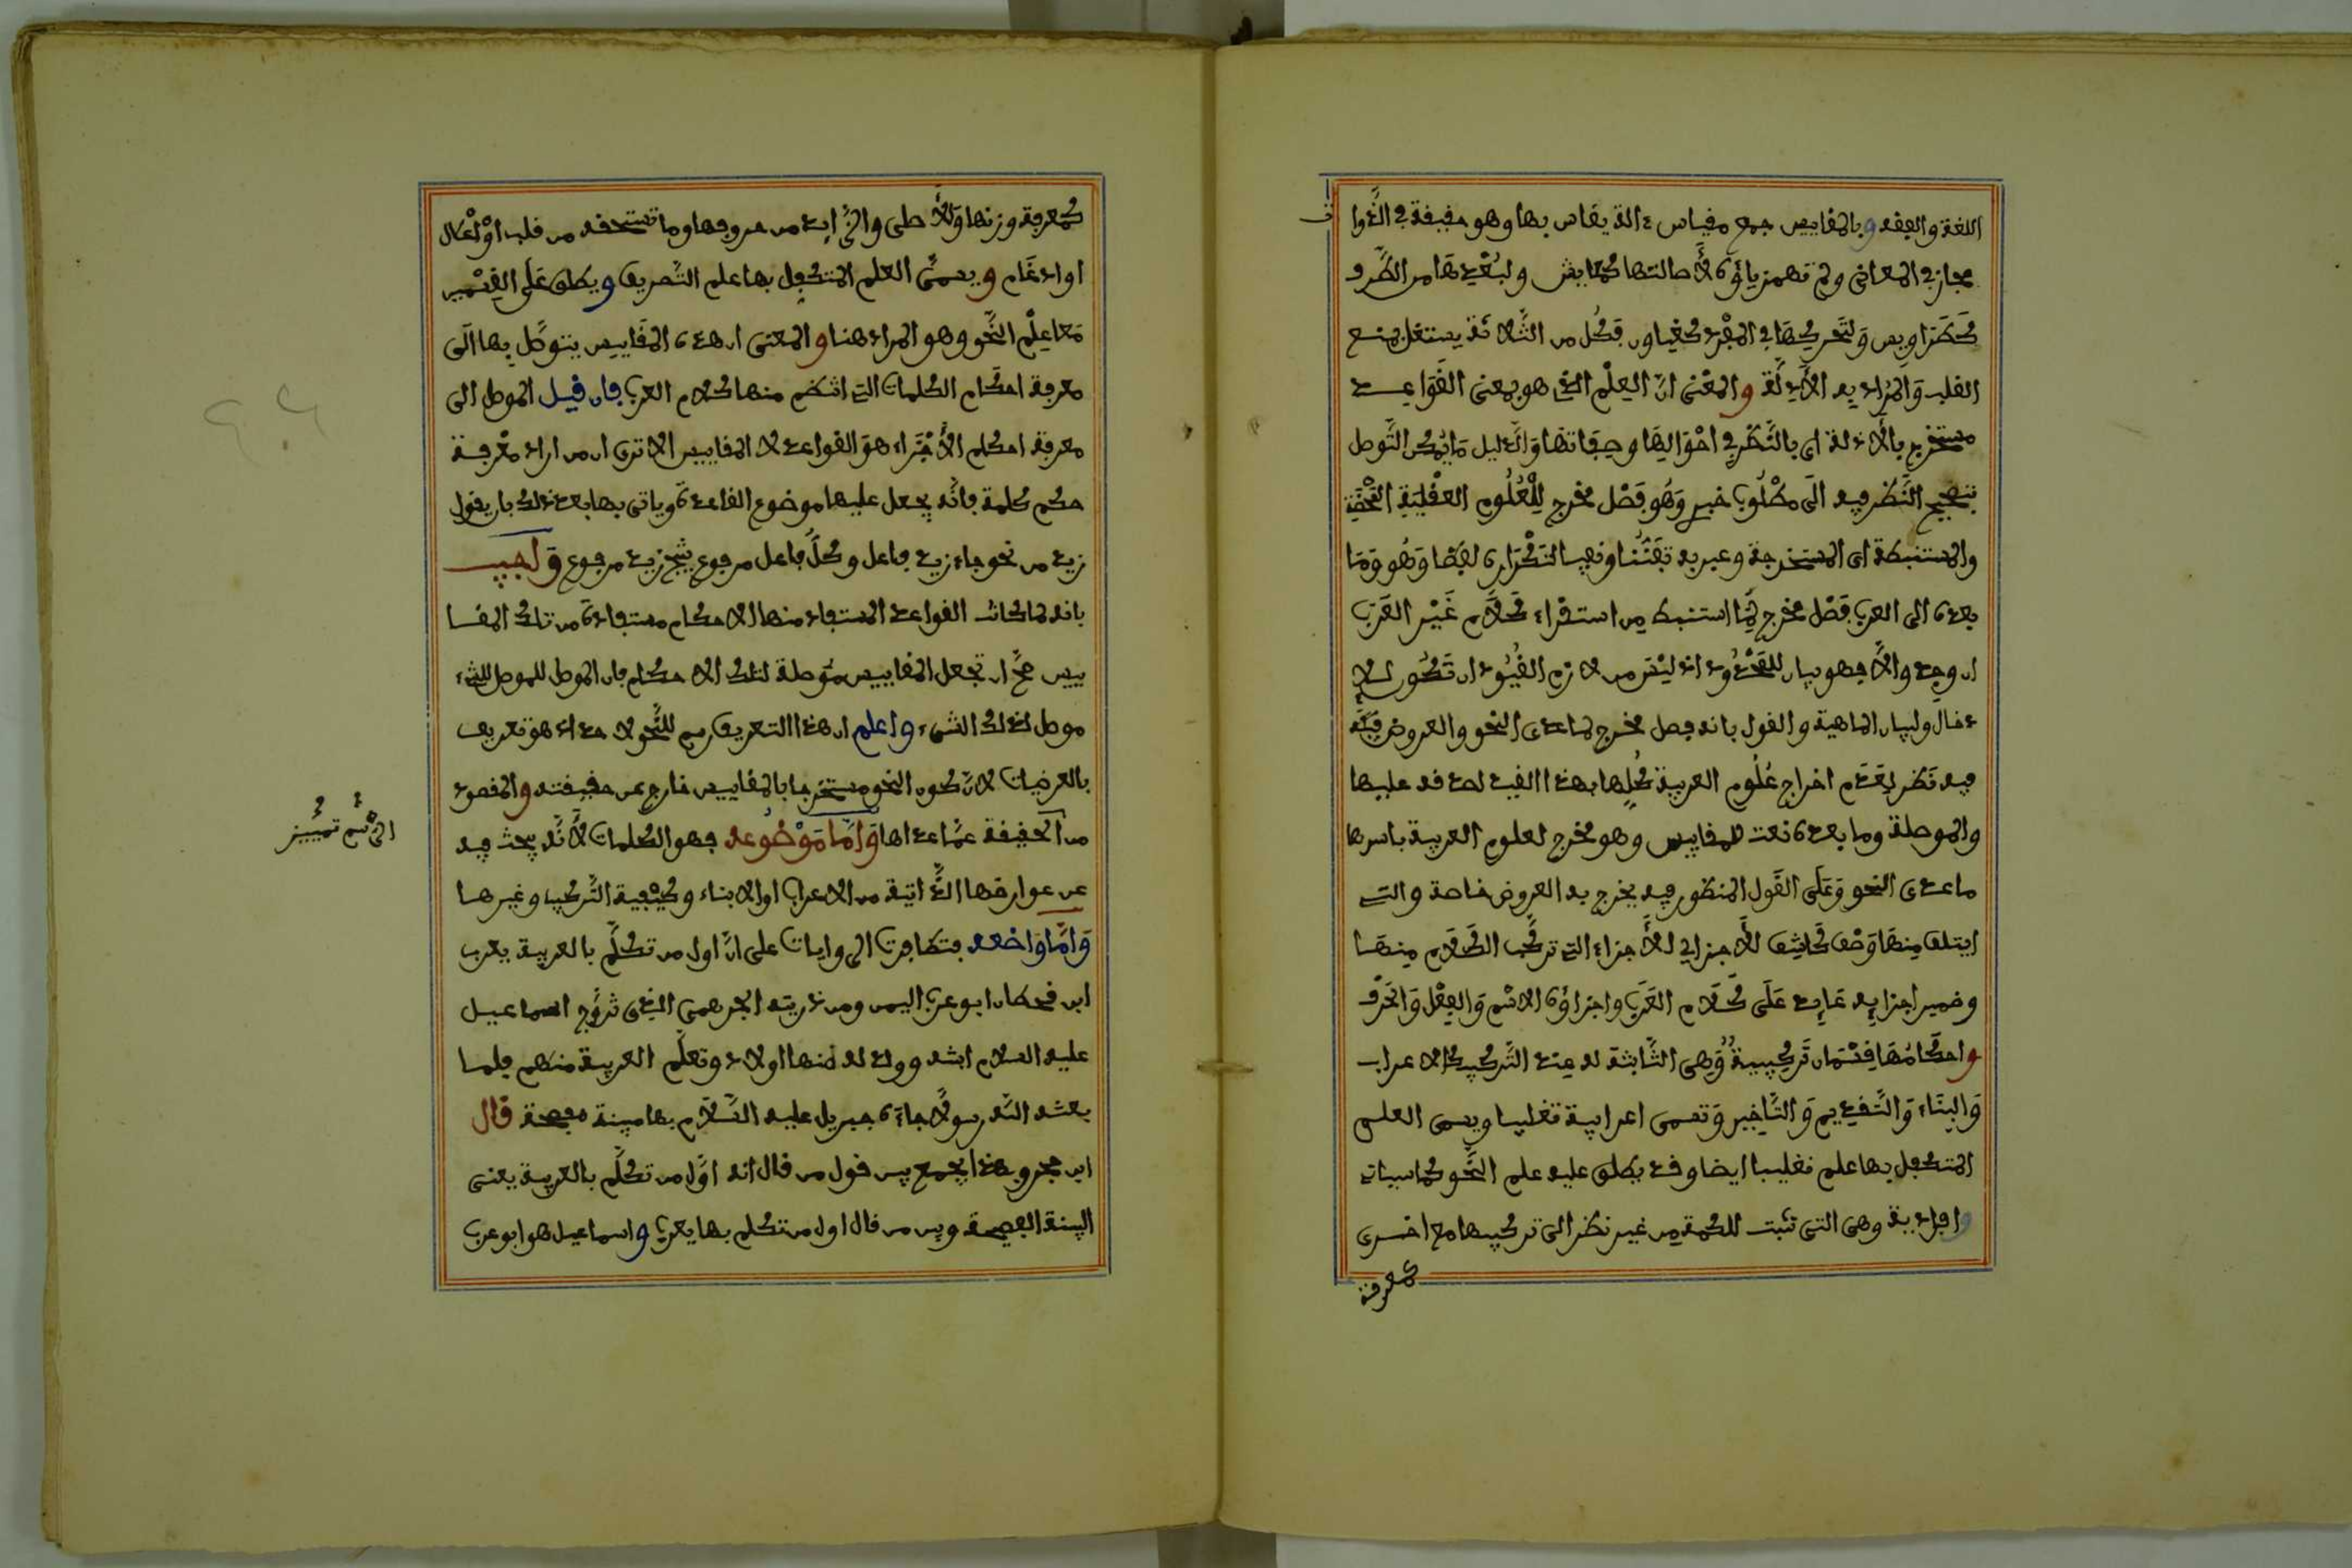 اللغة والفقه وبالمقاييس جمع مقياس ءالة يقاس بها وهو حقيقة في الذوا
مجاز في المعاني ولم تهمز ياؤه لأصالتها كمعايش ولبعدها من الطرف
كطواويس ولتحريكها في المفرد فكل من الثلاثة يستقل بمنع
القلب والمراد به الأدلة والمعنى ان العلم الذي هو بمعنى القواعد
مستخرج بالأدلة اى بالنظر في احوالها وصفاتها والدليل ما يمكن التوصل
بصحيح النظر فيه الى مطلوب خبري وهو فصل مخرج للعلوم العقلية المحضة
والمستنبطة اى المستخرجة وعبر به تفننا وتجنبا لتكراره لفظا وهو وما
بعده الى العرب فصل مخرج لما استنبط من استقراء كلام غير العرب
ان وجد والا فهو بيان للمحدود اذ ليس من لازم القيود ان تكون للا
دخال ولبيان الماهية والقول بانه فصل مخرج لما عدى النحو والعروض
فيه نظر لعدم اخراج علوم العربية كلها بهذا القيد لصدقه عليها
والموصلة وما بعده نعت للمقاييس وهو مخرج لعلوم العربية باسرها
ما عدى النحو وعلى القول المنظور فيه يخرج به العروض خاصة والتي
ايتلف منها وصف كاشف للأجزاء اى للأجزاء التي تركب الكلام منها
وضمير اجزائه عايد على كلام العرب واجزاؤه الاسم والفعل والحرف
واحكامها قسمان تركيبية وهى الثابتة له عند التركيب كالاعراب
والبناء والتقديم والتاخير وتسمى اعرابية تغليبا ويسمى العلم
المتكفل بها علم تغليبا ايضا وقد يطلق عليه علم النحو كما سيات
وافرادية وهى التي تثبت للكلمة من غير نظر الى تركيبها مع اخرى
كمعرفة
كمعرفة وزنها والأصلى والزايد من حروفها وما تستحقه من قلب او اعلال
او ادغام ويسمى العلم المتكفل بها علم التصريف ويطلق على القسمين
معا علم النحو وهو المراد هنا والمعنى ان هذه المقاييس يتوصل بها الى
معرفة احكام الكلمات التي انتظم منها كلام العرب فان قيل الموصل الى
معرفة احكام الأجزاء هو القواعد لا المقاييس الا ترى ان من اراد معرفة
حكم كلمة فانه يجعل عليها موضوع القاعدة وياتى بها بعد ذلك بان يقول
زيد من نحو جاء زيد فاعل وكل فاعل مرفوع ينتج زيد مرفوع واجيب
بانه لما كانت القواعد المستفاد منها الاحكام مستفادة من تلك المقا
ييس صح ان تجعل المقاييس موصلة لتلك الاحكام فان الموصل للموصل للشيء
موصل لذلك الشيء واعلم ان هذا التعريف رسم للنحو لا حد اذ هو تعريف
بالعرضيات لان كون النحو مستخرجا بالمقاييس خارج عن حقيقته والمقصود
من الحقيقة عما عداها واما موضوعه فهو الكلمات لأنه يبحث فيه
عن عوارضها الذاتية من الاعراب او الابناء وكيفية التركيب وغيرها
واما واضعه فتظافرت الروايات على ان اول من تكلم بالعربية يعرب
ابن قحطان ابو عرب اليمن ومن ذريته الجرهمى الذى تزوج اسماعيل
عليه السلام ابنته وولد له منها اولاد وتعلم العربية منهم فلما
بعثه الله رسولا جاءه جبريل عليه السلام بها مبينة فصيحة قال
ابن حجر وبهذا يجمع بين قول من قال انه اول من تكلم بالعربية يعنى
البينة الفصيحة وبين من قال اول من تكلم بها يعرب واسماعيل هو ابو عرب
تمييز